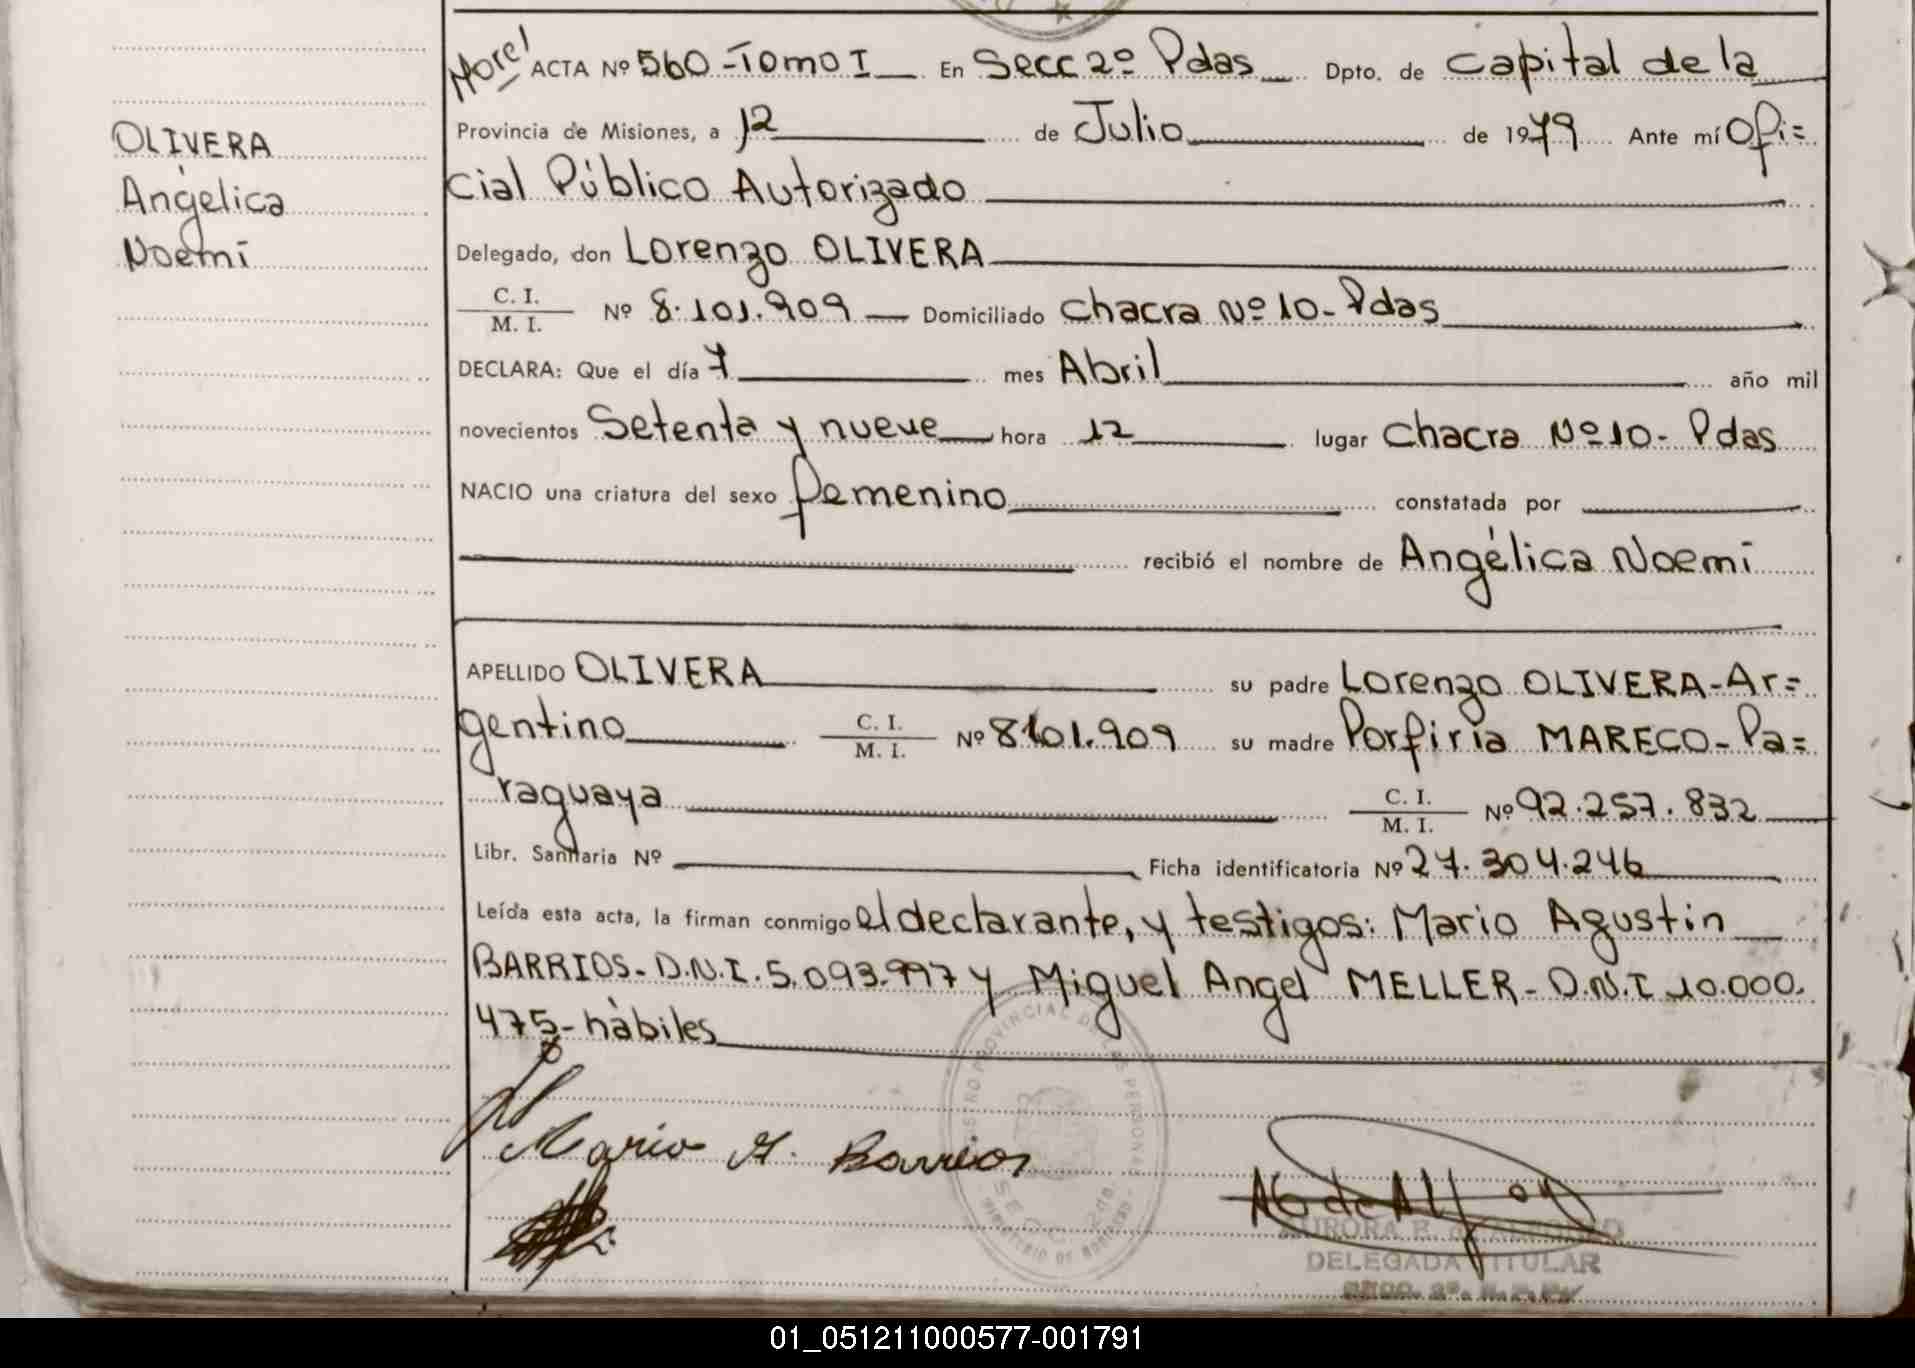 OLIVERA
Angélica
Noemí
ACTA Nº 560 - Tomo I En Secc 2º Pdas Dpto. de Capital de la
Provincia de Misiones, a 12 de Julio de 1979 Ante mí Ofi=
cial Público Autorizado
Delegado, don Lorenzo OLIVERA
C. I. / M. I. Nº 8.101.909 Domiciliado Chacra Nº 10 - Pdas
DECLARA: Que el día 7 mes Abril año mil
novecientos Setenta y nueve hora 12 lugar Chacra Nº 10 - Pdas
NACIO una criatura del sexo femenino constatada por
recibió el nombre de Angélica Noemí
APELLIDO OLIVERA su padre Lorenzo OLIVERA - Ar=
gentino C. I. / M. I. Nº 8101.909 su madre Porfiria MARECO - Pa=
raguaya C. I. / M. I. Nº 92.257.832
Libr. Sanitaria Nº Ficha identificatoria Nº 27.304.246
Leída esta acta, la firman conmigo el declarante, y testigos: Mario Agustín
BARRIOS - D.N.I. 5.093.997 y Miguel Angel MELLER - D.N.I 10.000.
475 - hàbiles
Mario A. Barrios
DELEGADA TITULAR
01_051211000577-001791